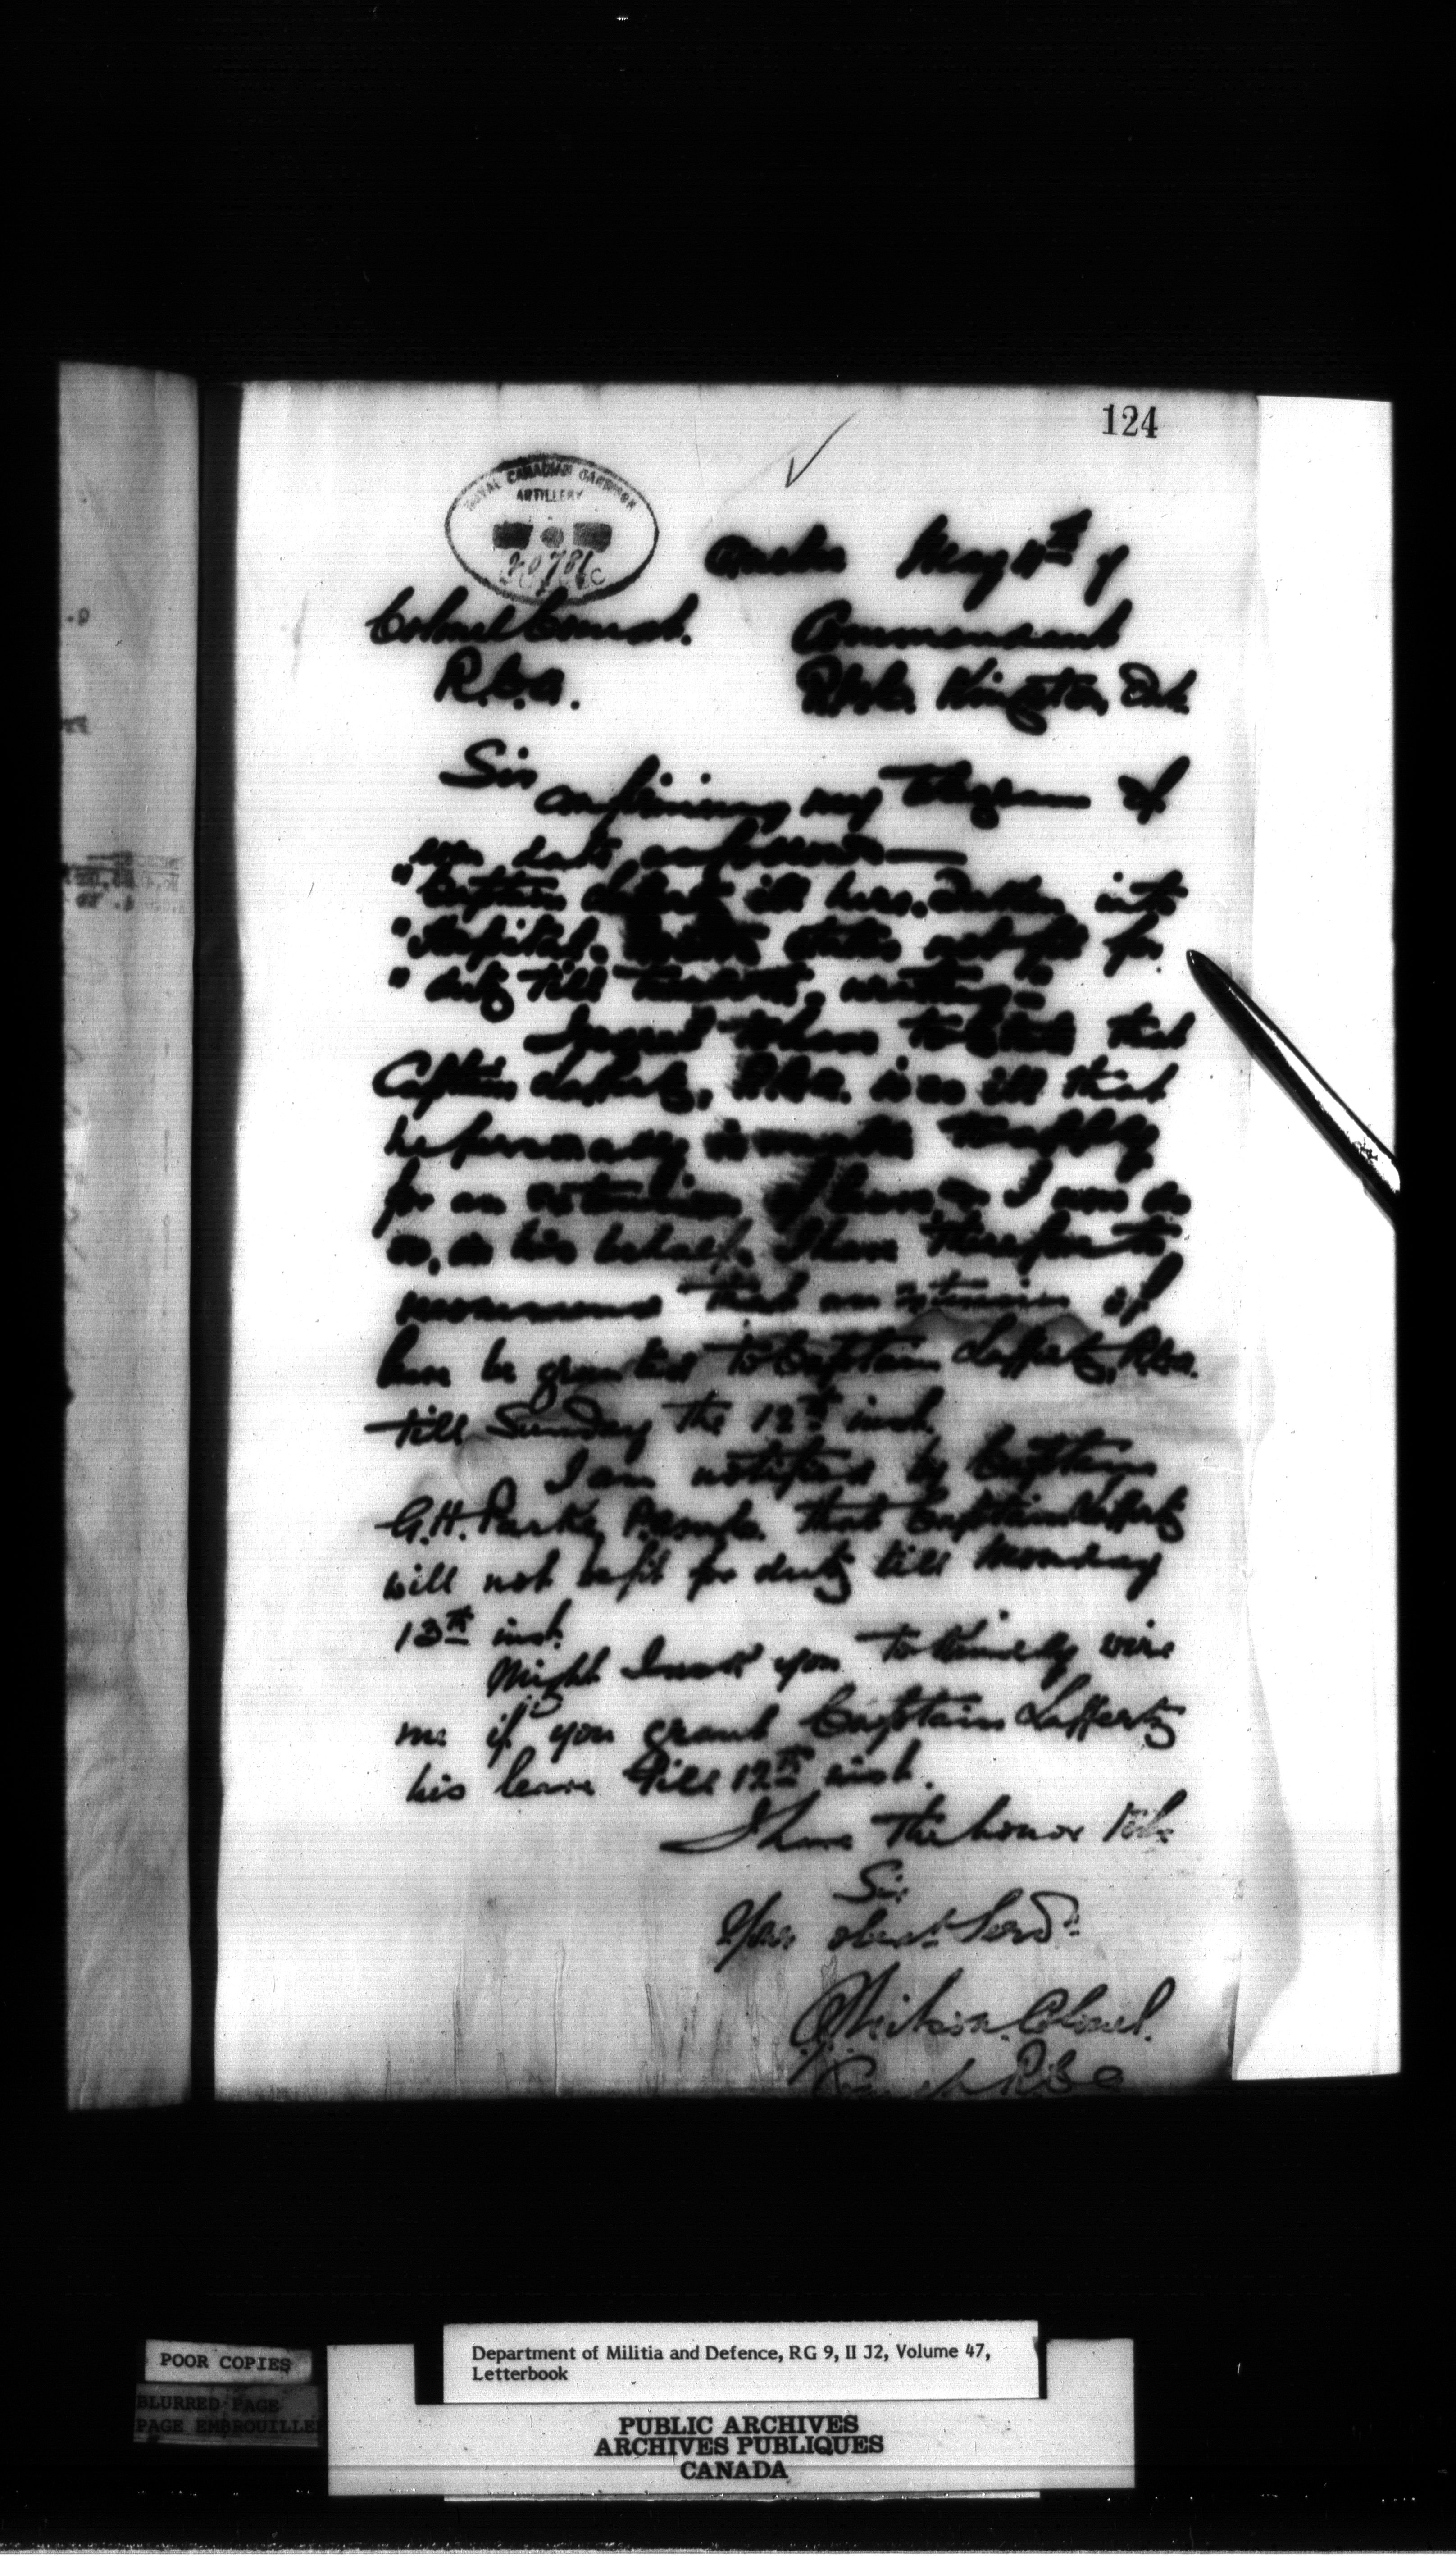 124
ROYAL CANADIAN GARRISON
ARTILLERY
20781
May
Colonel Command.
Commandant
R.C.A.
R.M.C. Kingston, Ont.
Sir
Confirming my telegram of
date as follows
"Captain ill here. into
"Hospital. states not fit for
"duty till
I to have to state that
Captain Lafferty, R.C.A. is so ill that
he personally is unable to apply
for an extension of leave, so I now do
so, on his behalf. I have therefore to
recommend that an extension of
leave be granted to Captain Lafferty, R.C.A.
till Sunday the 12th inst.
I am notified by Captain
G.H. Parke, that Captain Lafferty
will not be fit for duty till Monday
13th inst.
Might I ask you to kindly wire
me if you grant Captain Lafferty
his leave till 12th inst.
I have the honor to be
Sir
Your obedt. Servt.
Colonel.
R.C.A.
POOR COPIES
BLURRED PAGE
PAGE EMBROUILLE
Department of Militia and Defence, RG 9, II J2, Volume 47,
Letterbook
PUBLIC ARCHIVES
ARCHIVES PUBLIQUES
CANADA